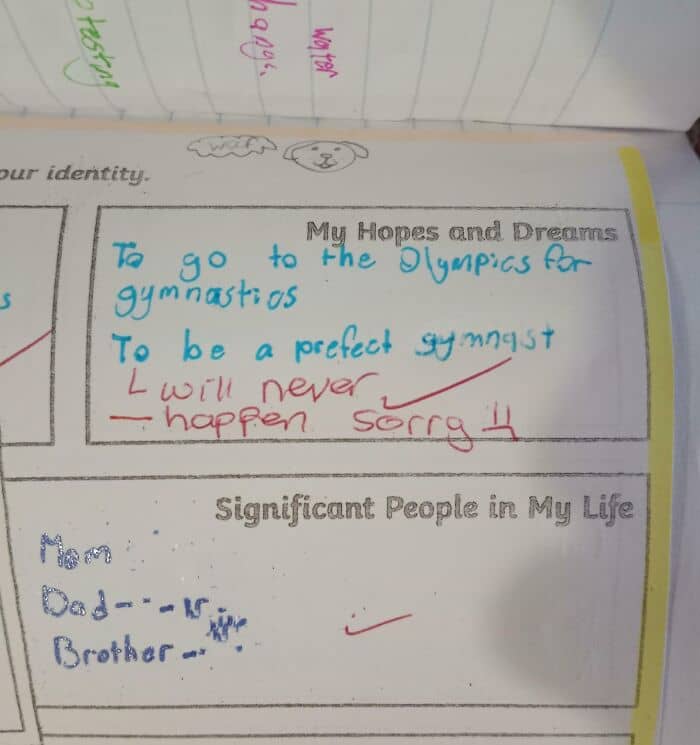 testing
water
woof
our identity.
My Hopes and Dreams
To go to the Olympics for
gymnastics
To be a prefect gymnast
will never
happen sorry !!
s
Significant People in My Life
Mom
Dad
Brother